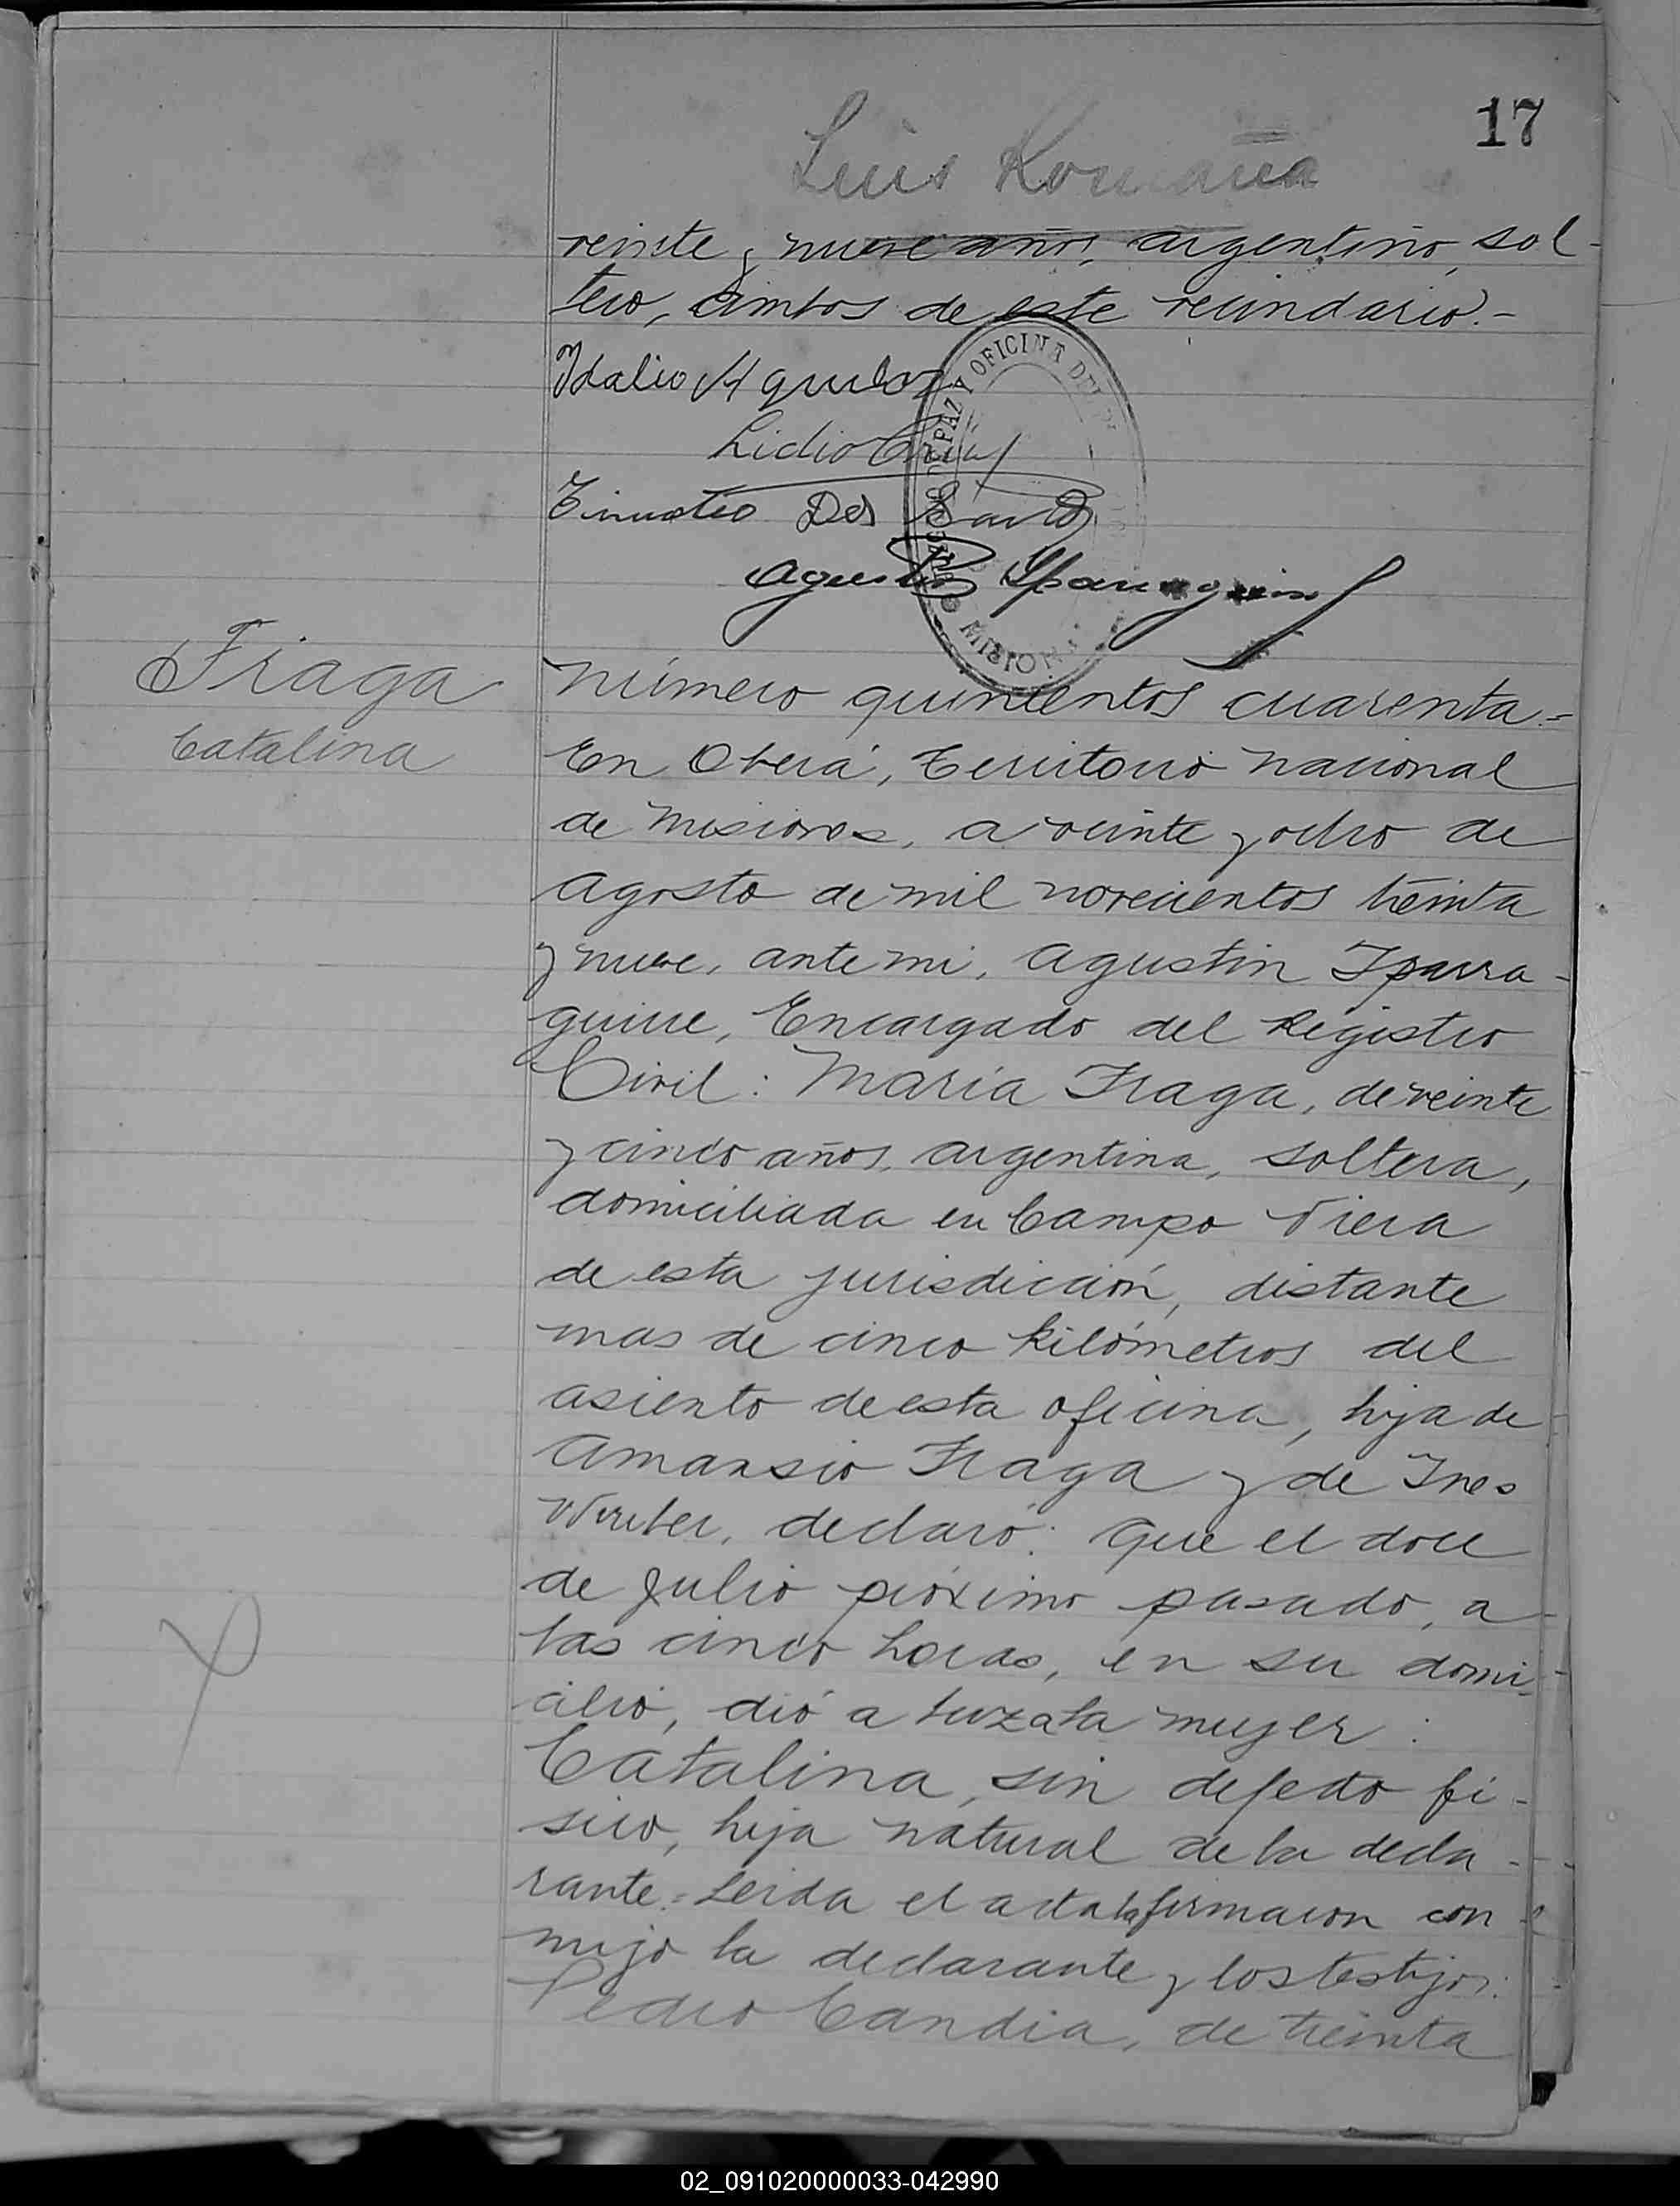 17
Luis Romaña
veinte y nueve años, argentino, sol-
tero, ambos de este vecindario.-
Idalio Aquiloz
Lidio
Timoteo Dos Santos
Agustin Iparraguirre
JUZGADO DE PAZ Y OFICINA DEL
MISIONES
Fraga
Catalina
Número quinientos cuarenta.=
En Oberá, Territorio Nacional
de Misiones, a veinte y ocho de
Agosto de mil novecientos treinta
y nueve, ante mi, Agustin Iparra-
guirre, Encargado del Registro
Civil: Maria Fraga, de veinte
y cinco años, argentina, soltera,
domiciliada en Campo Viera
de esta jurisdicción, distante
mas de cinco kilómetros del
asiento de esta oficina, hija de
Amansio Fraga y de Ines
declaró: Que el doce
de Julio próximo pasado, a
las cinco horas, en su domi-
cilio, dió a luz a la mujer:
Catalina, sin defecto fi-
sico, hija natural de la decla-
rante.= Leida el acta la firmaron con
migo la declarante y los testigos:
Pedro Candia, de treinta
02_091020000033-042990